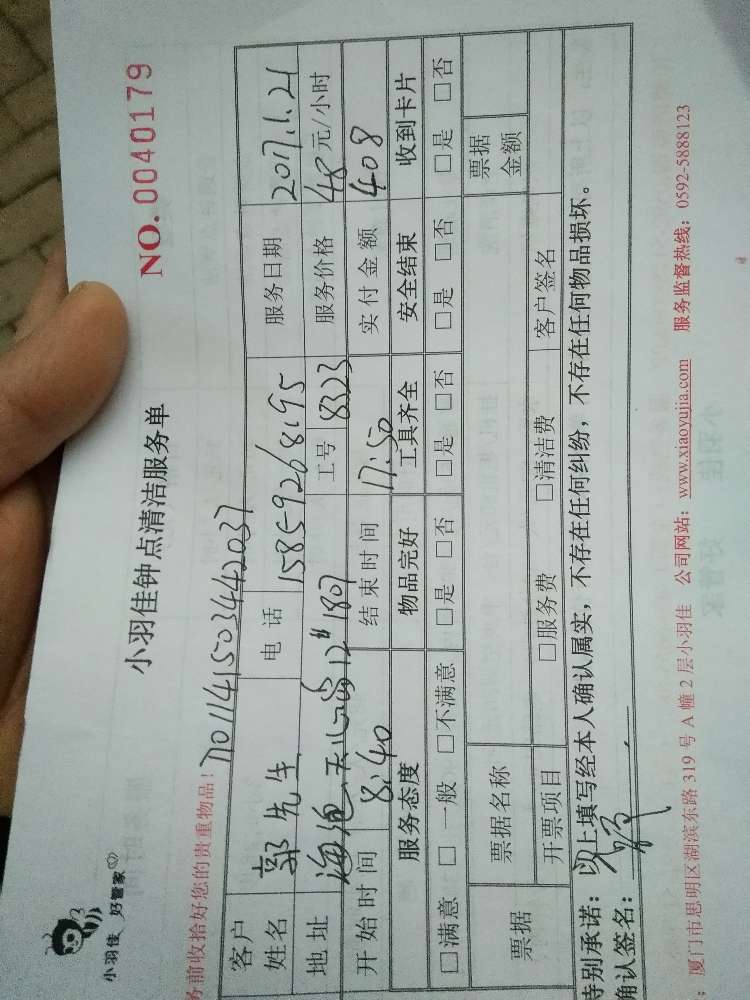 小羽佳 好管家
小羽佳钟点清洁服务单
NO.0040179
务前收拾好您的贵重物品！
7011415034442037
客户姓名 郭先生 电话 15859268195 服务日期 2017.1.21
地址 海沧天心岛12#1801 工号 8323 服务价格 48元/小时
开始时间 8:40 结束时间 17:50 实付金额 408
服务态度 物品完好 工具齐全 安全结束 收到卡片
□满意 □一般 □不满意 □是 □否 □是 □否 □是 □否 □是 □否
票据 票据名称 票据金额
开票项目 □服务费 □清洁费 客户签名
特别承诺：以上填写经本人确认属实，不存在任何纠纷，不存在任何物品损坏。
确认签名：
：厦门市思明区湖滨东路 319 号 A 幢 2 层小羽佳 公司网站：www.xiaoyujia.com 服务监督热线：0592-5888123